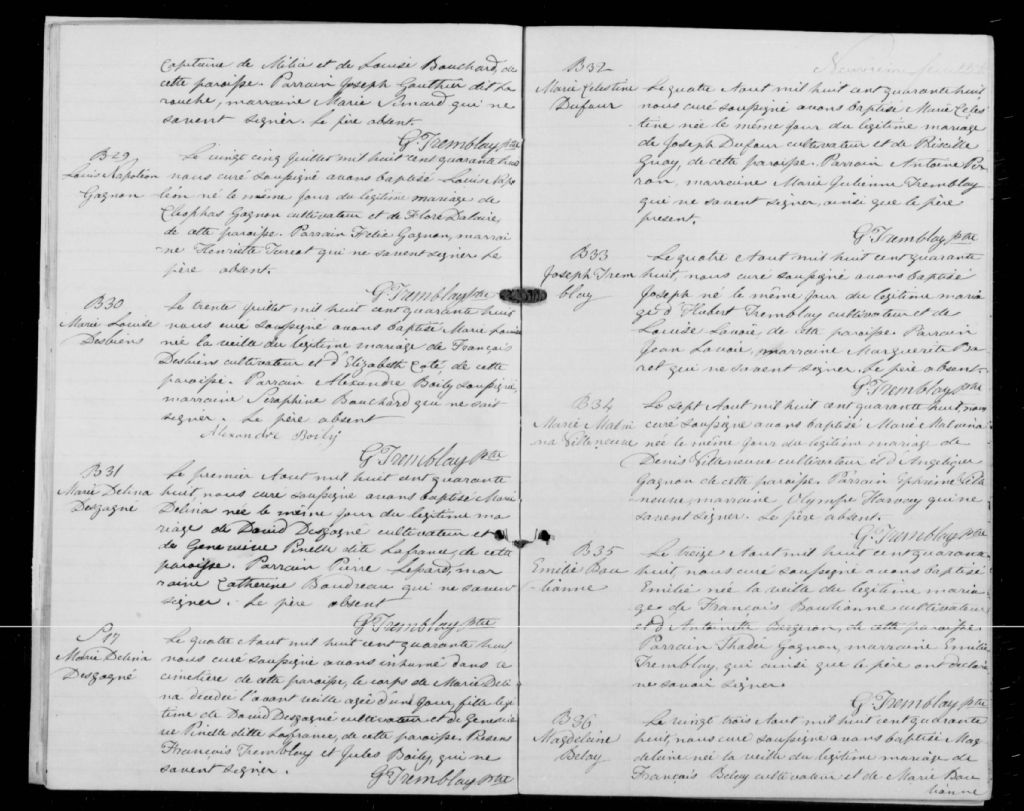 Capitaine de Milice et de Louise Bouchard, de
cette paroisse. Parrain Joseph Gauthier dit La
rouche, marraine Marie Simard qui ne
savent signer. Le père absent.
G. Tremblay ptre
B29
Louis Napoléon
Gagnon
Le vingt cinq Juillet mil huit cent quarante huit
nous curé soussigné avons baptisé Louis Napo
léon né le même jour du légitime mariage de
Cléophas Gagnon cultivateur et de Flore Dallaire,
de cette paroisse. Parrain Félix Gagnon, marrai
ne Henriette Turcot qui ne savent signer Le
père absent.
G. Tremblay ptre
B30
Marie Louise
Desbiens
Le trente Juillet mil huit cent quarante huit
nous curé soussigné avons baptisé Marie Louise
née la veille du légitime mariage de François
Desbiens cultivateur et d'Elizabeth Coté, de cette
paroisse. Parrain Alexandre Boily soussigné,
marraine Séraphine Bouchard qui ne sait
signer. Le père absent
Alexandre Boily
G. Tremblay ptre
B31
Marie Delina
Desgagné
Le premier Aout mil huit cent quarante
huit, nous curé soussigné avons baptisé Marie
Delina née le même jour du légitime ma
riage de David Desgagné cultivateur et
de Geneviève Pinelle dite Lafrance, de cette
paroisse. Parrain Pierre Lepard, mar
raine Catherine Boudreau qui ne savent
signer. Le père absent
G. Tremblay ptre
S17
Marie Delina
Desgagné
Le quatre Aout mil huit cent quarante huit
nous curé soussigné avons inhumé dans le
cimetière de cette paroisse, le corps de Marie Deli
na décédée l'avant veille agée d'un jour fille légi
time de David Desgagné cultivateur et de Geneviè
ve Pinelle ditte Lafrance, de cette paroisse. Présens
François Tremblay et Jules Boily, qui ne
savent signer.
G. Tremblay ptre
B32
Marie Célestine
Dufour
Le quatre Aout mil huit cent quarante huit
nous curé soussigné avons baptisé Marie Céles
tine née le même jour du légitime mariage
de Joseph Dufour cultivateur et de Priscille
Guay, de cette paroisse. Parrain Antoine Per
ron, marraine Marie Julienne Tremblay
qui ne savent signer, ainsi que le père
présent.
G. Tremblay ptre
B33
Joseph Trem
blay
Le quatre Aout mil huit cent quarante
huit, nous curé soussigné avons baptisé
Joseph né le même jour du légitime maria
ge d'Hubert Tremblay cultivateur et de
Louise Lavoie, de cette paroisse. Parrain
Jean Lavoie, marraine Marguerite Ba
ret qui ne savent signer. Le père absent.
G. Tremblay ptre
B34
Marie Malvi
na Villeneuve
Le sept Aout mil huit cent quarante huit, nous
curé soussigné avons baptisé Marie Malvina
née le même jour du légitime mariage de
Denis Villeneuve cultivateur et d'Angélique
Gagnon de cette paroisse. Parrain Ephrème Ville
neuve, marraine Olympe Harvay qui ne
savent signer. Le père absent.
G. Tremblay ptre
B35
Emélie Bou
lianne
Le treize Aout mil huit cent quarante
huit, nous curé soussigné avons baptisé
Emélie née la veille du légitime maria
ge de François Boulianne cultivateur
et d'Antoinette Bergeron, de cette paroisse.
Parrain Thadée Gagnon, marraine Emélie
Tremblay, qui ainsi que le père ont déclaré
ne savoir signer.
G. Tremblay ptre
B36
Magdelaine
Belay
Le vingt trois Aout mil huit cent quarante
huit, nous curé soussigné avons baptisé Mag
delaine née la veille du légitime mariage de
François Belay cultivateur et de Marie Bou
lianne